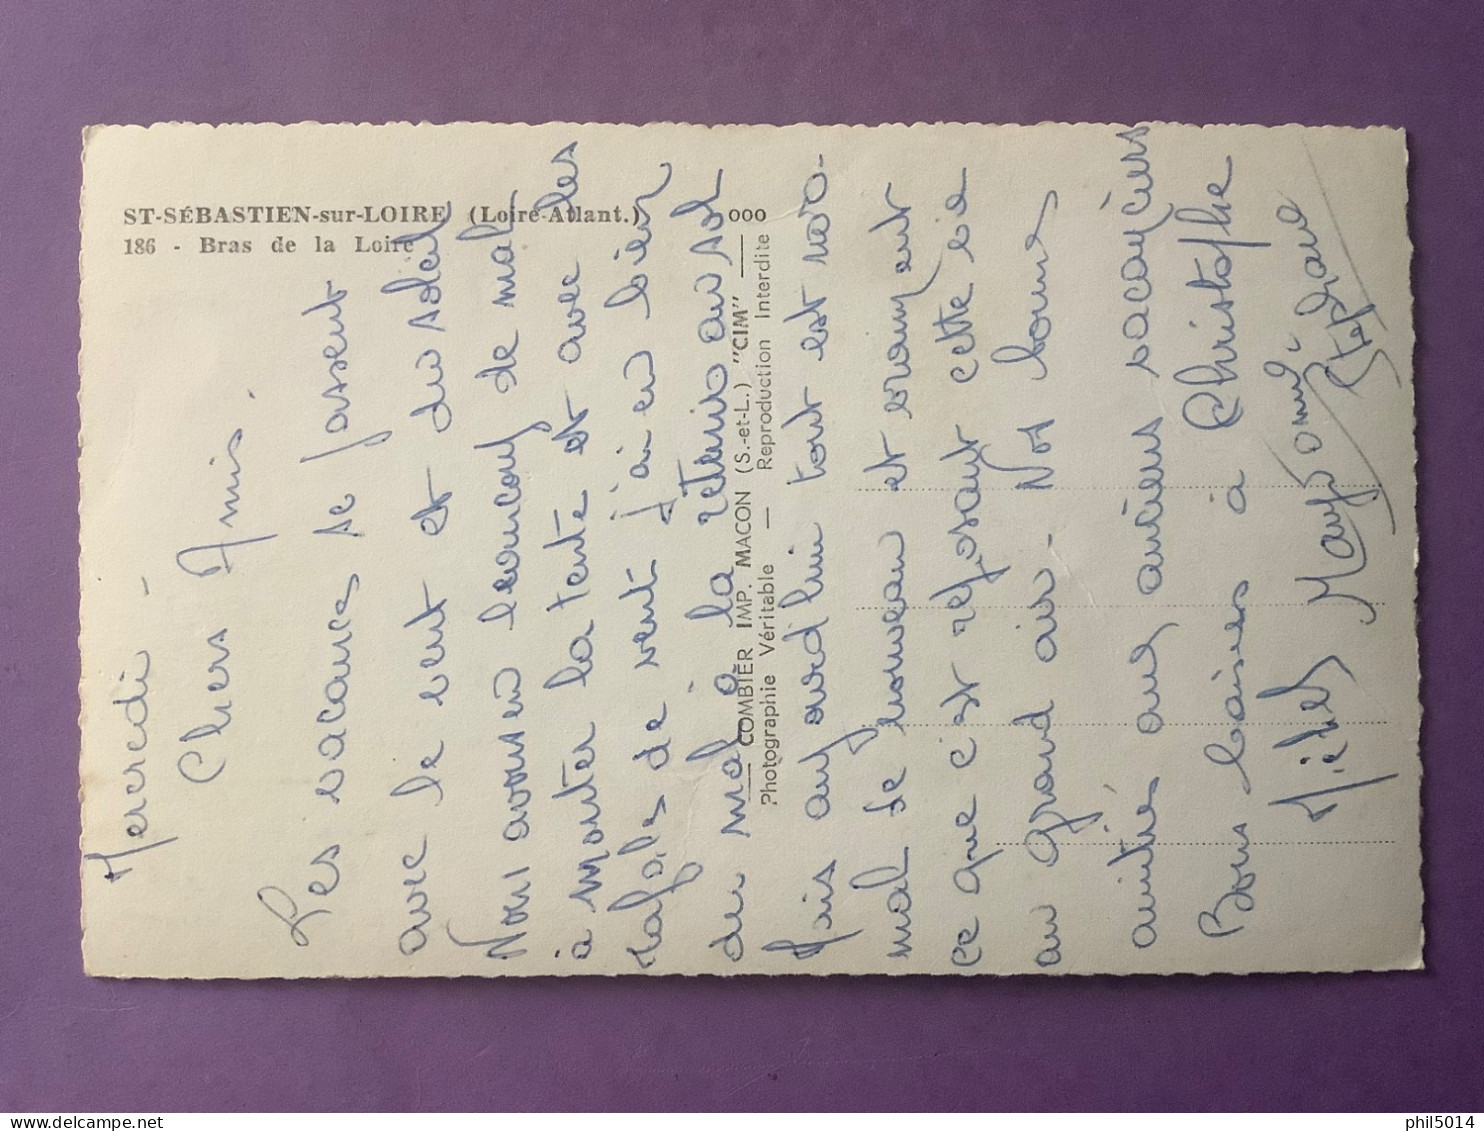 ST-SÉBASTIEN-sur-LOIRE (Loire-Atlant.)
186 - Bras de la Loire
ooo
COMBIER IMP. MACON (S.-et-L.) "CIM"
Photographie Véritable — Reproduction Interdite
Mercredi -
Chers Amis.
Les vacances se passent
avec le vent et du soleil
Nous avons eu beaucoup de mal
à monter la tente et avec les
rafales de vent j'ai eu bien
du mal à la retenir au sol
Mais aujourd'hui tout est
mal de nouveau et vraiment
ce que c'est reposant cette vie
au grand air - Nos bonnes
amitiés aux anciens
Bons baisers à Christophe
Michel, Maryvonne
Stéphane
phil5014